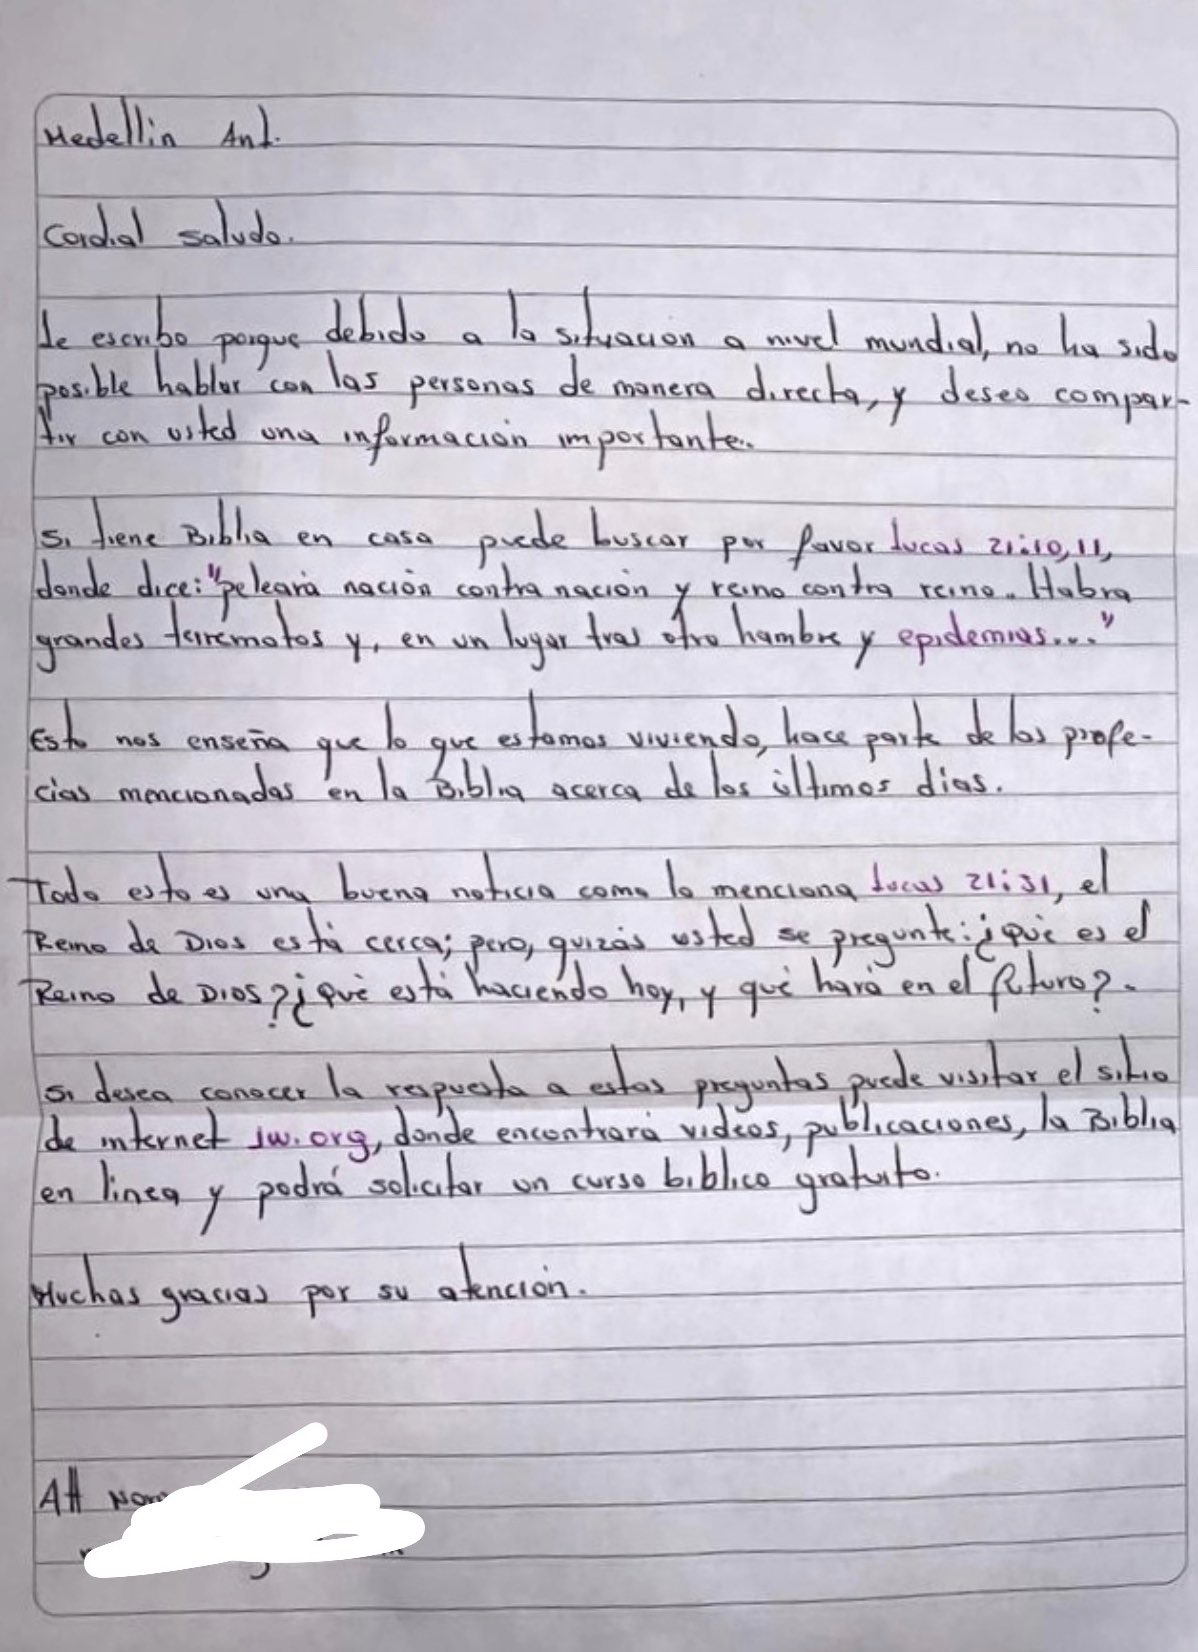 Medellin Ant.
Cordial saludo.
Le escribo porque debido a la situación a nivel mundial, no ha sido
posible hablar con las personas de manera directa, y deseo compar-
tir con usted una información importante.
Si tiene Biblia en casa puede buscar por favor Lucas 21:10,11,
donde dice: "peleará nación contra nación y reino contra reino. Habra
grandes terremotos y, en un lugar tras otro hambre y epidemias..."
Esto nos enseña que lo que estamos viviendo, hace parte de las profe-
cias mencionadas en la Biblia acerca de los últimos dias.
Todo esto es una buena noticia como lo menciona Lucas 21:31, el
Reino de Dios está cerca; pero, quizás usted se pregunte: ¿Qué es el
Reino de Dios? ¿Qué está haciendo hoy, y qué hará en el futuro?.
Si desea conocer la respuesta a estas preguntas puede visitar el sitio
de internet jw.org, donde encontrará videos, publicaciones, la Biblia
en linea y podrá solicitar un curso bíblico gratuito.
Muchas gracias por su atención.
Att